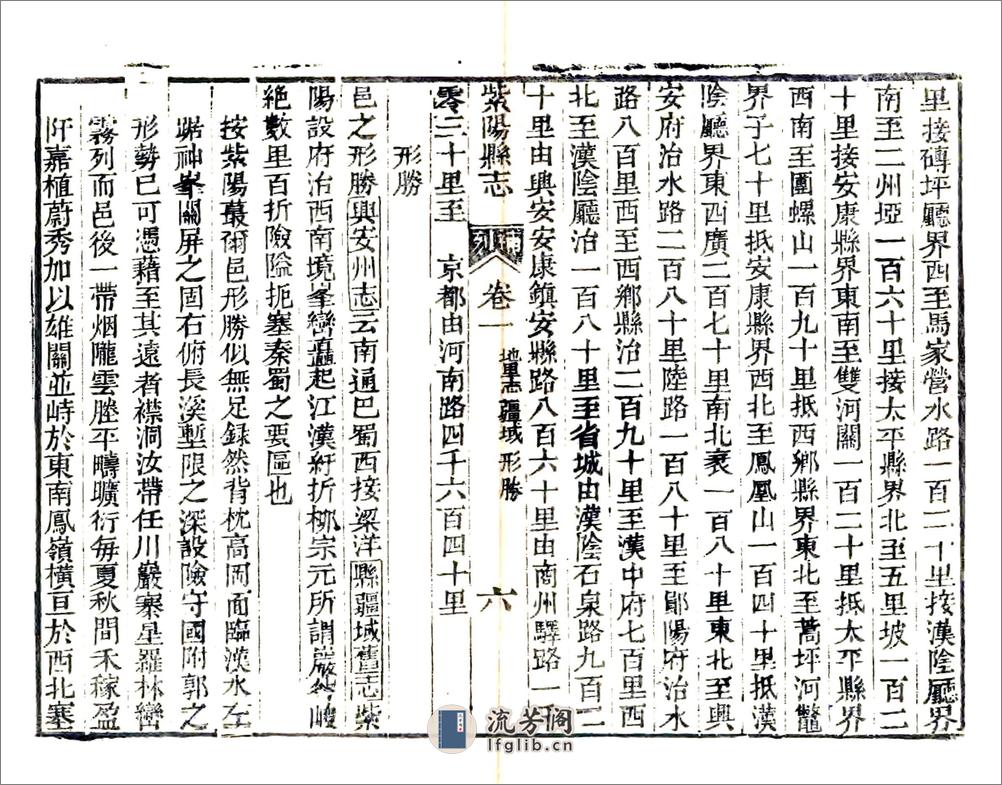 里接磚坪廳界西至馬家營水路一百二十里接漢陰廳界
南至二州埡一百六十里接太平縣界北至五里坡一百二
十里接安康縣界東南至雙河關一百二十里抵太平縣界
西南至團螺山一百九十里抵西鄉縣界東北至蒿坪河鼈
界子七十里抵安康縣界西北至鳳凰山一百四十里抵漢
陰廳界東西廣二百七十里南北袤一百八十里東北至興
安府治水路二百八十里陸路一百八十里至鄖陽府治水
路八百里西至西鄉縣治二百九十里至漢中府七百里西
北至漢陰廳治一百八十里至省城由漢陰石泉路九百二
十里由興安安康鎮安縣路八百六十里由商州驛路一
紫陽縣志 補刻 卷一 地里志 疆域 形勝 六
零二十里至 京都由河南路四千六百四十里
形勝
邑之形勝興安州志云南通巴蜀西接梁洋縣疆域舊志紫
陽設府治西南境峯巒矗起江漢紆折柳宗元所謂嚴峻
絕數里百折險隘扼塞秦蜀之要區也
按紫陽蕞爾邑形勝似無足録然背枕高岡面臨漢水左
踞神峯關屏之固右俯長溪塹限之深設險守國附郭之
形勢已可憑藉至其遠者襟洞汝帶任川巖寨星羅林巒
霧列而邑後一帶烟隴雲塍平疇曠衍每夏秋間禾稼盈
阡嘉植蔚秀加以雄關並峙於東南鳳嶺橫亘於西北塞
流芳阁
lfglib.cn